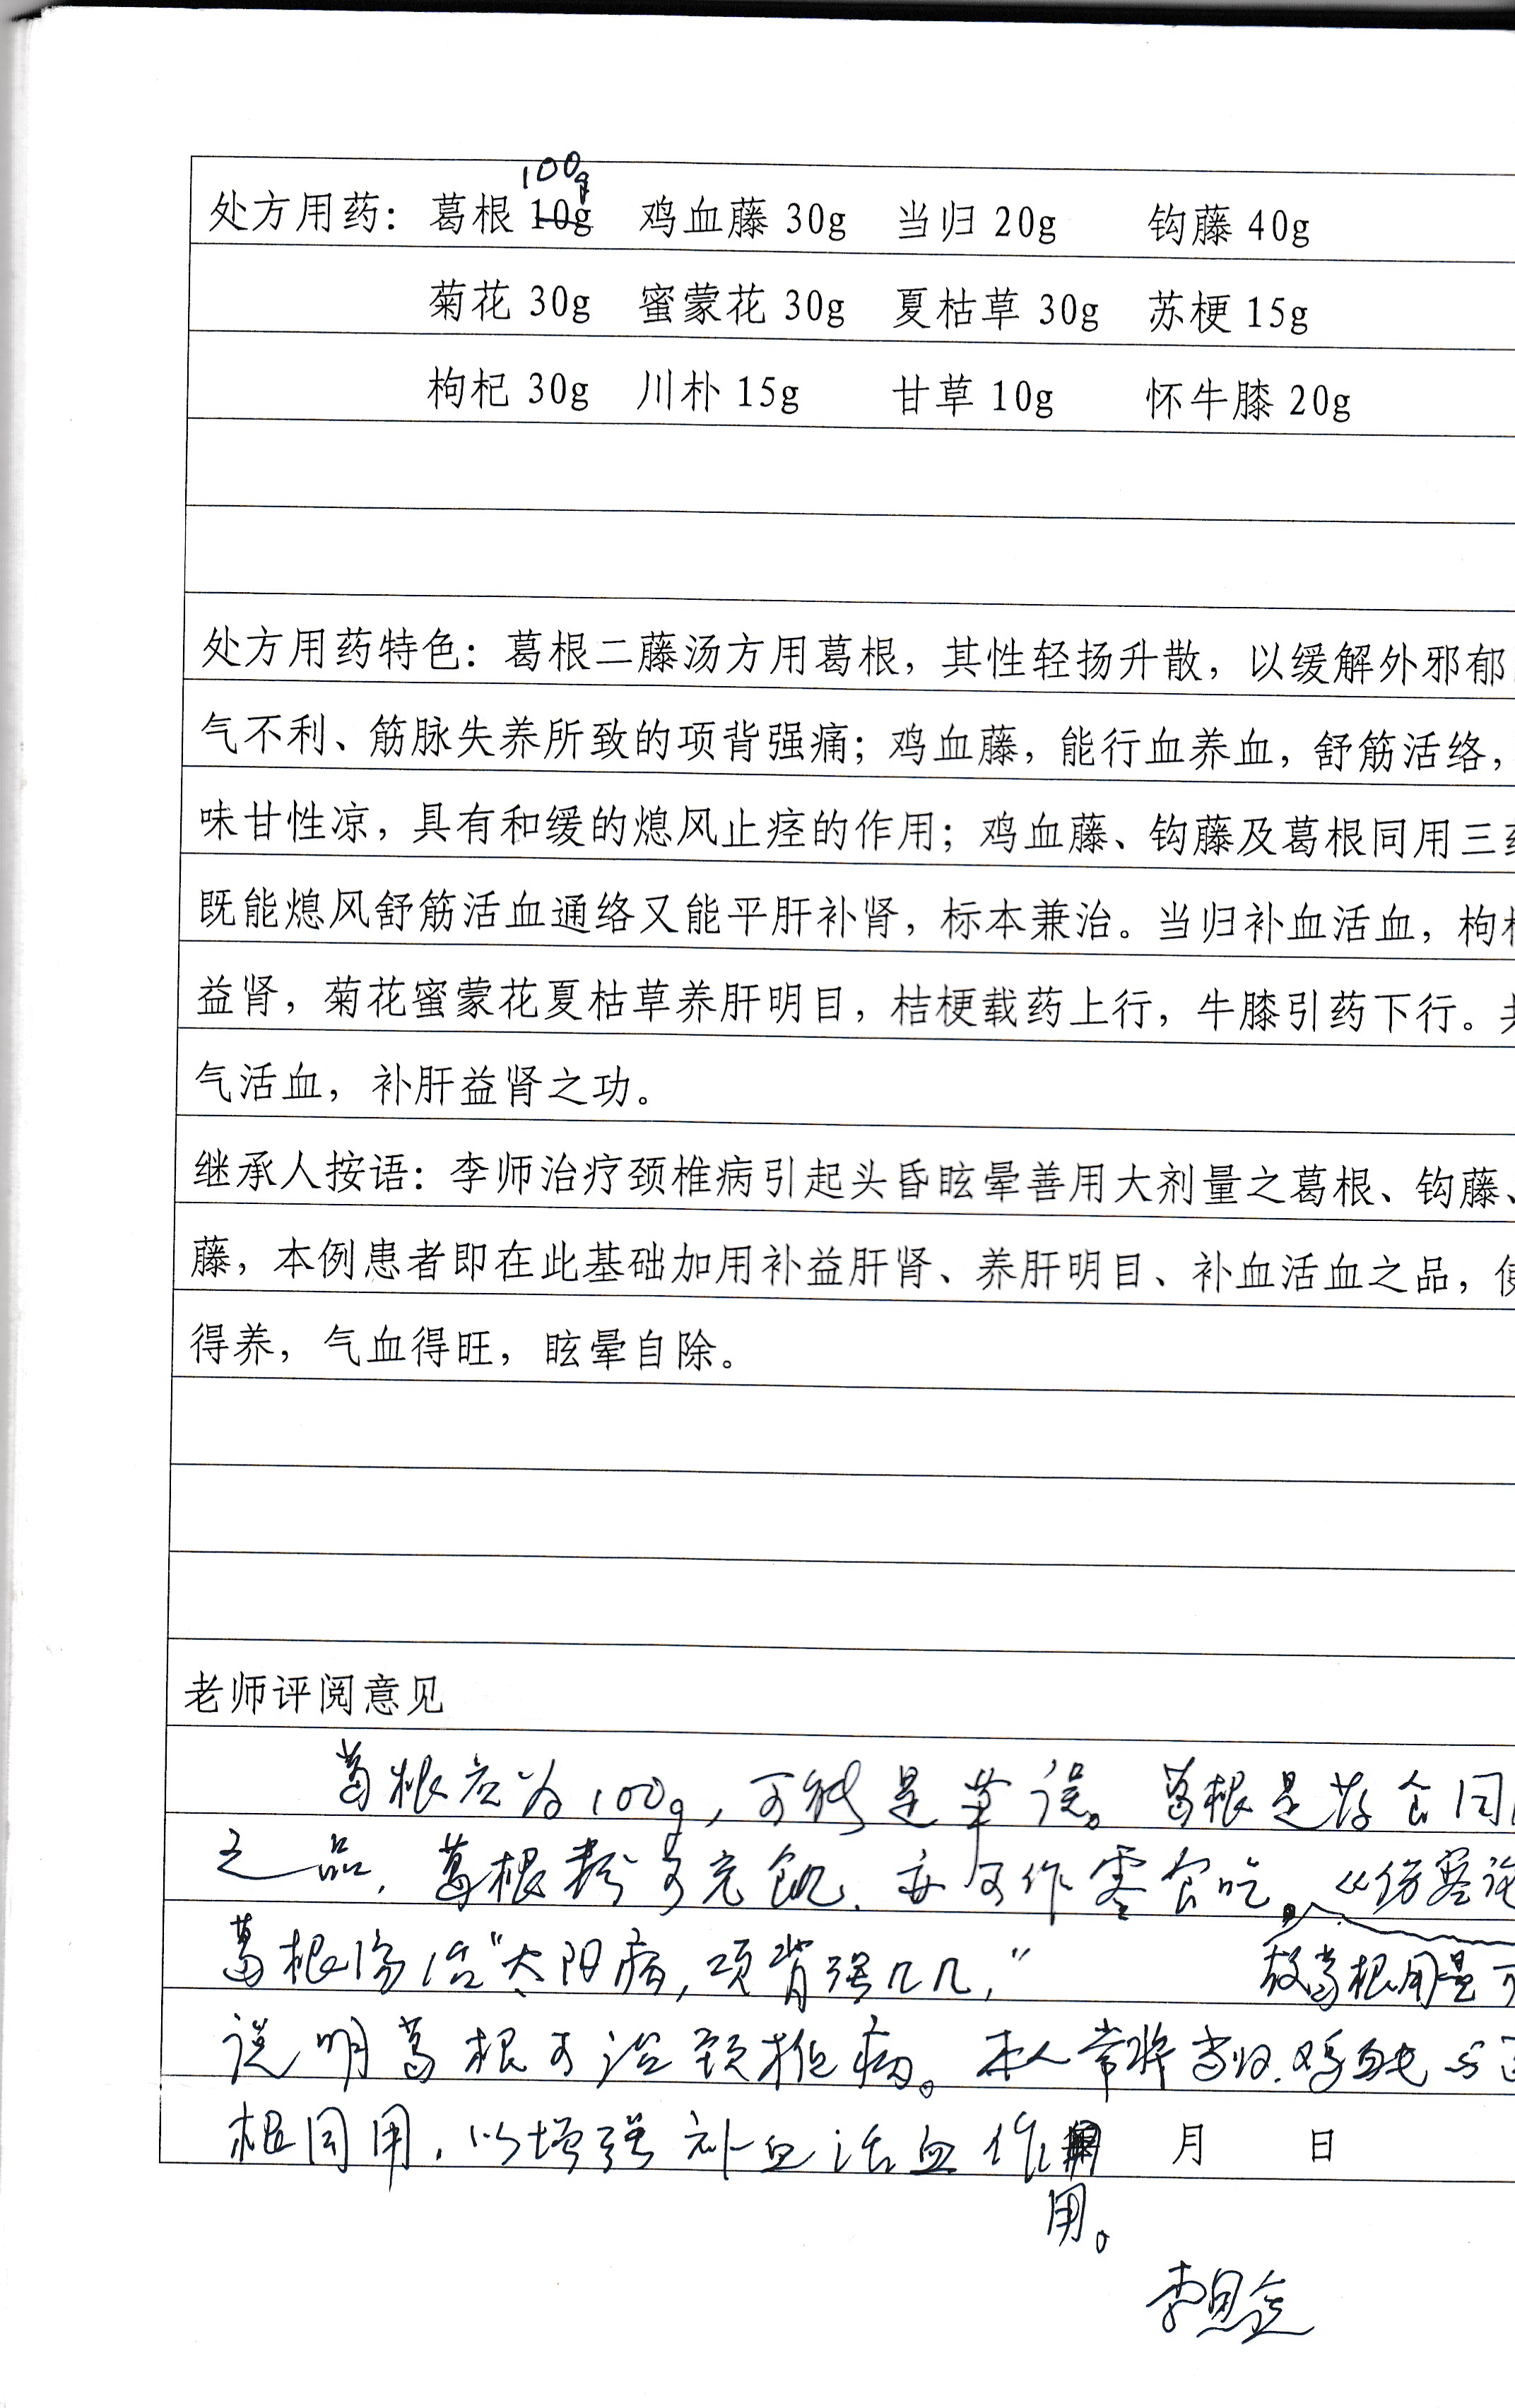 100g
处方用药：葛根 10g 鸡血藤 30g 当归 20g 钩藤 40g
菊花 30g 蜜蒙花 30g 夏枯草 30g 苏梗 15g
枸杞 30g 川朴 15g 甘草 10g 怀牛膝 20g
处方用药特色：葛根二藤汤方用葛根，其性轻扬升散，以缓解外邪郁
气不利、筋脉失养所致的项背强痛；鸡血藤，能行血养血，舒筋活络，
味甘性凉，具有和缓的熄风止痉的作用；鸡血藤、钩藤及葛根同用三
既能熄风舒筋活血通络又能平肝补肾，标本兼治。当归补血活血，枸
益肾，菊花蜜蒙花夏枯草养肝明目，桔梗载药上行，牛膝引药下行。
气活血，补肝益肾之功。
继承人按语：李师治疗颈椎病引起头昏眩晕善用大剂量之葛根、钩藤、
藤，本例患者即在此基础加用补益肝肾、养肝明目、补血活血之品，使
得养，气血得旺，眩晕自除。
老师评阅意见
葛根应为100g，可能是笔误。葛根是药食同
之品，葛根粉可充饥，亦可作零食吃。《伤寒论
葛根汤治“太阳病，项背强几几，”
故葛根用量可
说明葛根可治颈椎病。本人常将当归、鸡血
根同用，以增强补血活血作 月 日
用。